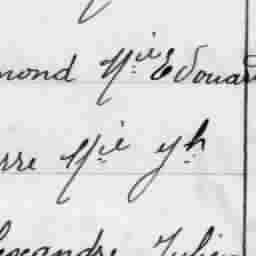 mond Mie Edouard
rre Mie Jh
exandre Julien